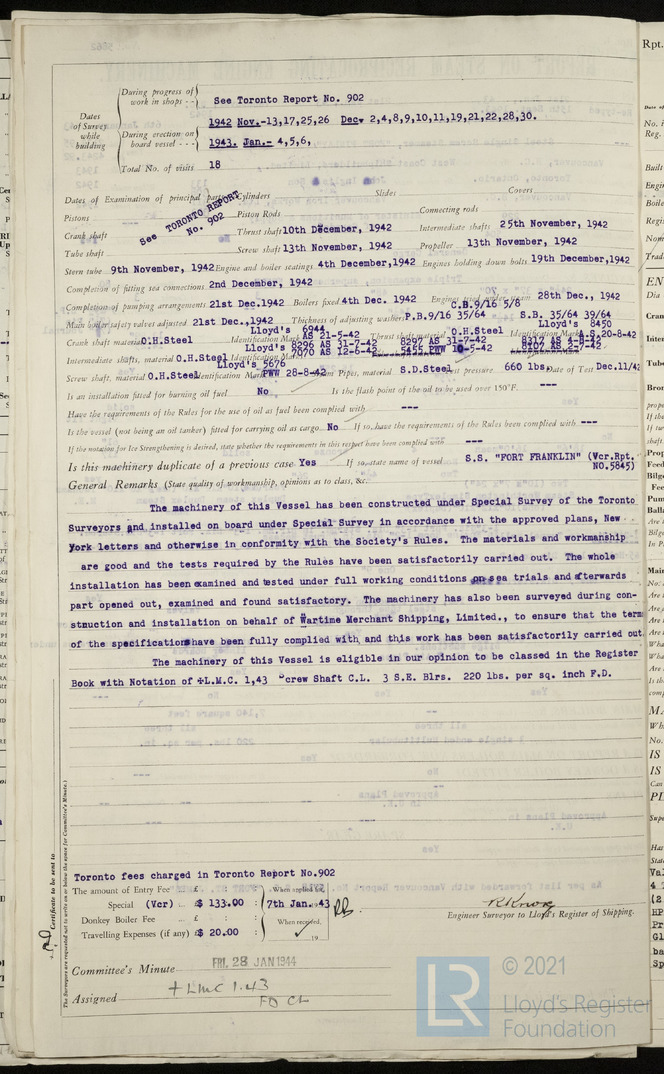 Rpt.
During progress of work in shops - - See Toronto Report No. 902
Dates of Survey while building
1942 Nov.-13,17,25,26 Dec. 2,4,8,9,10,11,19,21,22,28,30.
During erection on board vessel - - -
1943. Jan.- 4,5,6,
Total No. of visits 18
Dates of Examination of principal parts Cylinders Slides Covers
See TORONTO REPORT No. 902
Pistons Piston Rods Connecting rods
Crank shaft Thrust shaft 10th December, 1942 Intermediate shafts 25th November, 1942
Tube shaft Screw shaft 13th November, 1942 Propeller 13th November, 1942
Stern tube 9th November, 1942 Engine and boiler seatings 4th December, 1942 Engines holding down bolts 19th December, 1942
Completion of fitting sea connections 2nd December, 1942
Completion of pumping arrangements 21st Dec.1942 Boilers fixed 4th Dec. 1942 Engines tried under steam 28th Dec., 1942
C.B.9/16 5/8
Main boiler safety valves adjusted 21st Dec.,1942 Thickness of adjusting washers P.B.9/16 35/64 S.B. 35/64 39/64
Lloyd's 6944 Lloyd's 8450
Crank shaft material O.H.Steel Identification Mark AS 21-5-42 Thrust shaft material O.H.Steel Identification Mark A.S.20-8-42
Lloyd's 8296 AS 31-7-42 8297 AS 31-7-42 8317 AS 4-8-42
Intermediate shafts, material O.H.Steel Identification Marks 7070 AS 12-6-42 5455 PWW 10-5-42 8107 AS 2-7-42
Lloyd's 5676
Screw shaft, material O.H.Steel Identification Mark PWW 28-8-42 Steam Pipes, material S.D.Steel Test pressure 660 lbs. Date of Test Dec.11/42
Is an installation fitted for burning oil fuel No Is the flash point of the oil to be used over 150°F. ---
Have the requirements of the Rules for the use of oil as fuel been complied with ---
Is the vessel (not being an oil tanker) fitted for carrying oil as cargo. No If so, have the requirements of the Rules been complied with ---
If the notation for Ice Strengthening is desired, state whether the requirements in this respect have been complied with ---
Is this machinery duplicate of a previous case Yes If so, state name of vessel S.S. "FORT FRANKLIN" (Vcr.Rpt. NO.5845)
General Remarks (State quality of workmanship, opinions as to class, &c.
The machinery of this Vessel has been constructed under Special Survey of the Toronto
Surveyors and installed on board under Special Survey in accordance with the approved plans, New
York letters and otherwise in conformity with the Society's Rules. The materials and workmanship
are good and the tests required by the Rules have been satisfactorily carried out. The whole
installation has been examined and tested under full working conditions on sea trials and afterwards
part opened out, examined and found satisfactory. The machinery has also been surveyed during con-
struction and installation on behalf of Wartime Merchant Shipping, Limited., to ensure that the term
of the specifications have been fully complied with and this work has been satisfactorily carried out
The machinery of this Vessel is eligible in our opinion to be classed in the Register
Book with Notation of +L.M.C. 1,43 Screw Shaft C.L. 3 S.E. Blrs. 220 lbs. per sq. inch F.D.
Toronto fees charged in Toronto Report No.902
The amount of Entry Fee .. £ : : When applied for,
Special (Vcr) ... $ 133.00 : 7th Jan. 43
Donkey Boiler Fee ... £ : : When received,
Travelling Expenses (if any) $ 20.00 : 19
Engineer Surveyor to Lloyd's Register of Shipping.
Committee's Minute FRI. 28 JAN 1944
Assigned + LMC 1.43
FD CL
Certificate to be sent to
The Surveyors are requested not to write on or below the space for Committee's Minute.
LR © 2021
Lloyd's Register
Foundation